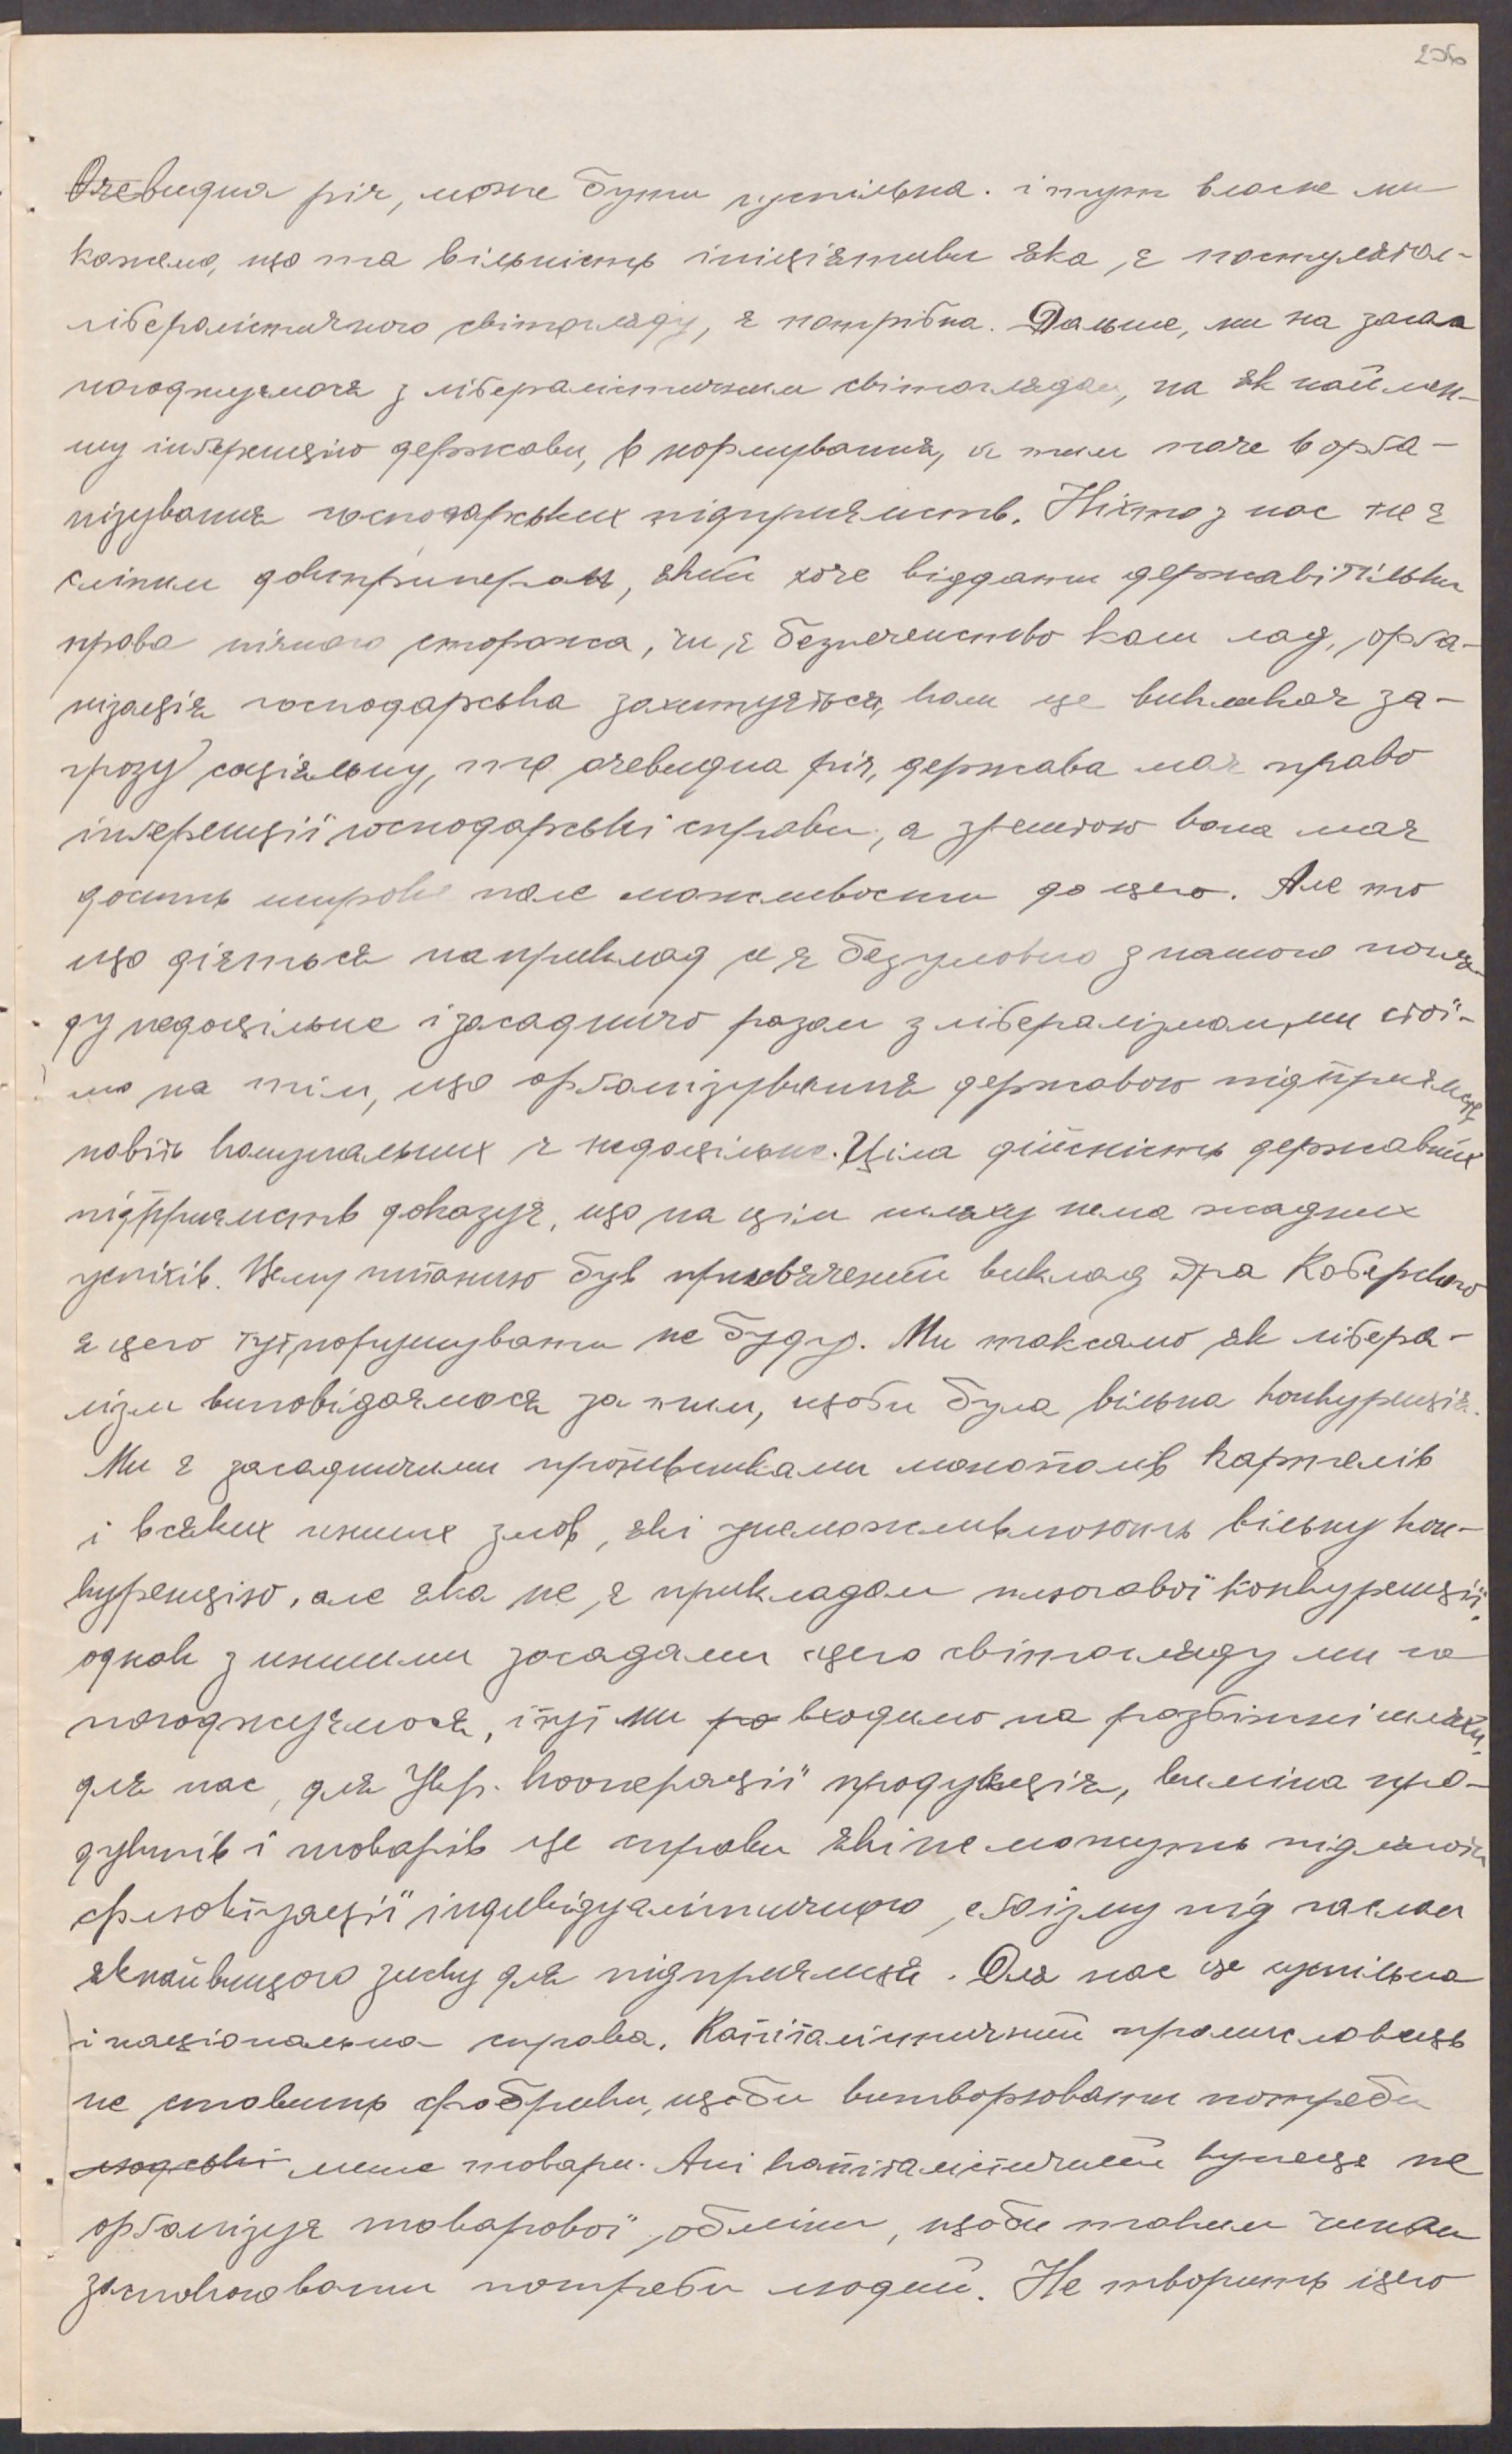 Очевидна річ, може бути суспільна. і тут власне ми
кажемо, що та вільність ініціятиви яка є постулятом
лібералістичного світогляду, є потрібна. Дальше, ми на загал
погоджуємося з лібералістичним світоглядом, на як наймен-
шу інґеренцію держави, в нормування, а тим паче в орґа-
нізування господарських підприємств. Ніхто з нас не є
сліпим доктринером, який хоче віддати державі тільки
права нічного сторожа, чи є безпеченство коли лад, орґа-
нізація господарська захитується, коли це викликає за-
грозу соціяльну, то очевидна річ, держава має право
інґеренції господарські справи, а зрештою вона має
досить широке поле можливости до цего. Але то
що діється наприклад є безумовно з нашого погля-
ду недоцільне і засадничо разом з лібералізмом, ми стої-
мо на тім, що орґанізування державою підприємств
навіть комунальних є недоцільне. Ціла дійсність державних
підприємств доказує, що на цім шляху нема жадних
успіхів. Цему питанню був присвячений виклад дра Коберского
я цего тут порушувати не буду. Ми так само як лібера-
лізм виповідаємося за тим, щоби була вільна конкуренція.
Ми є засадничими противниками монополів картелів
і всяких инших змов, які унеможливлюють вільну кон-
куренцію, але яка не є прикладом нищівної конкуренції,
однак з иншими засадами цего світогляду ми не
погоджуємося, і тут ми ра входимо на розбіжні шляхи,
для нас, для Укр. кооперації продукція, виміна про-
дуктів і товарів це справи які не можуть підлягати
сфлюктуації індивідуалістичного еґоїзму під гаслом
якнайвищого зиску для підприємця. Для нас це суспільна
і національна справа. Капіталістичний промисловець
не ставить фабрики, щоби витворювати потреби
людські лише товари. Ані капіталістичний купець не
орґанізує товарової обміни, щоби таким чином
заспокоювати потреби людий. Не творить цего